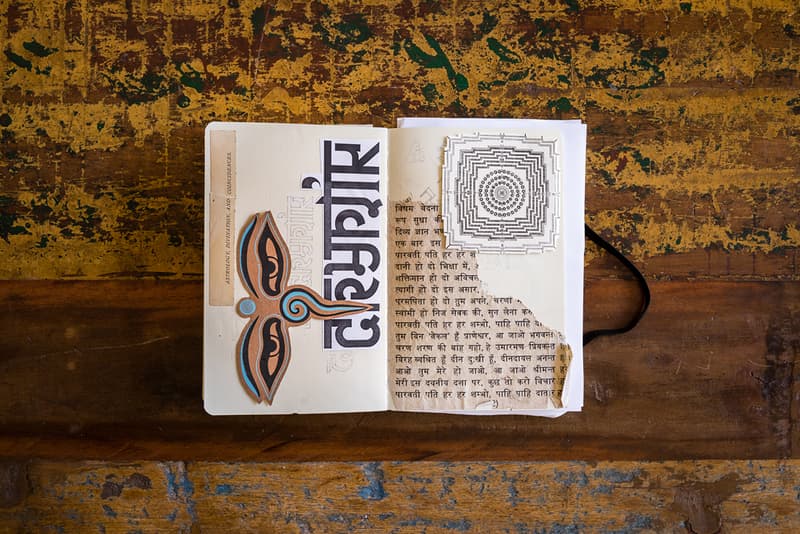 ASTROLOGY, DIVINATION, AND COINCIDENCES
विषम वेदना
रूप सुधा की
दिव्य ज्ञान
एक बार
पारवती पति हर हर
दानी हो दो भिक्षा में,
शक्तिमान हो दो
त्यागी हो दो इस असार
परमपिता हो तुम अपने, चरणों
स्वामी हो निज सेवक की, सुन लेना
पारवती पति हर हर शम्भो, पाहि पाहि
तुम बिन 'बेकल' हूँ प्राणेश्वर, आ जाओ भगवन्त
चरण शरण की बांह गहो, हे उमारमण प्रियकन्त
विरह व्यथित हूँ दीन दुःखी हूँ, दीनदयाल अनन्त
आओ तुम मेरे हो जाओ, आ जाओ श्रीमन्त
मेरी इस दयनीय दशा पर, कुछ तो करो विचार
पारवती पति हर हर शम्भो, पाहि पाहि दातार